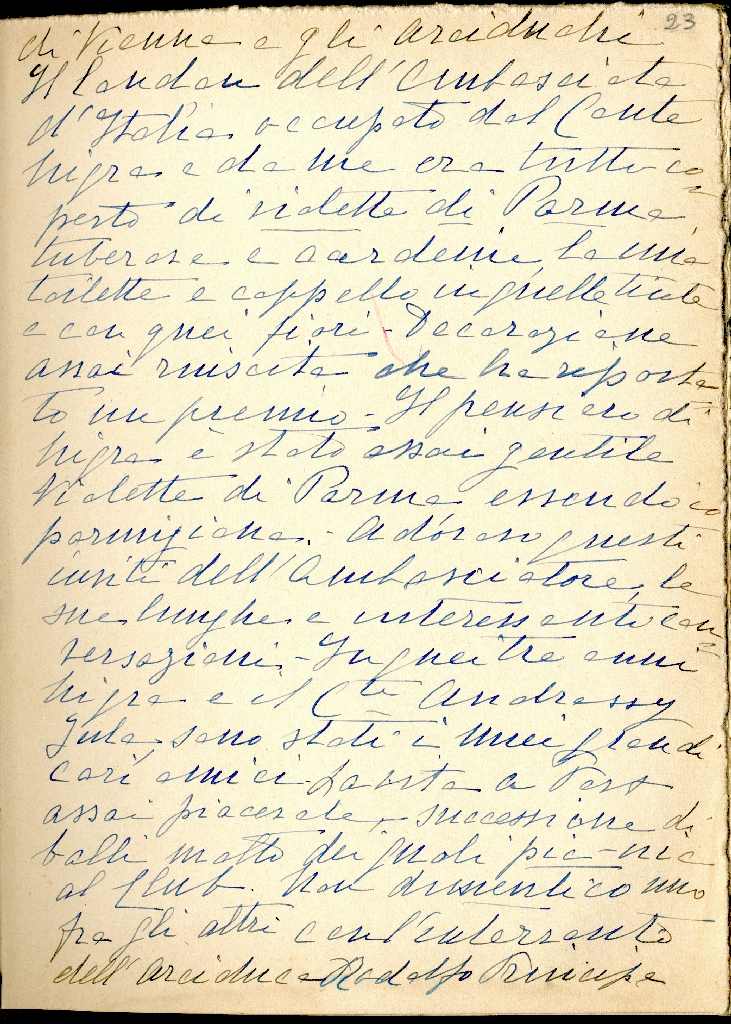 23
di Vienna e gli arciduchi
Il landau dell'Ambasciata
d'Italia occupato dal Conte
Nigra e da me era tutto co-
perto di violette di Parma,
tuberose e gardenie, la mia
toilette e cappello in quelle tinte
e con quei fiori - Decorazione
assai riuscita che ha riporta
to un premio - Il pensiero di
Nigra è stato assai gentile
Violette di Parma essendo io
parmigiana. - Adoravo questi
inviti dell'Ambasciatore, le
sue lunghe e interessanti con-
versazioni - In quei tre anni
Nigra e il Cte Andrassy
Jula, sono stati i miei grandi
cari amici - La vita a Pest
assai piacevole, successione di
balli molto dei quali pic-nic
al Club. Non dimentico uno
fra gli altri con l'intervento
dell'arciduca Rodolfo Principe